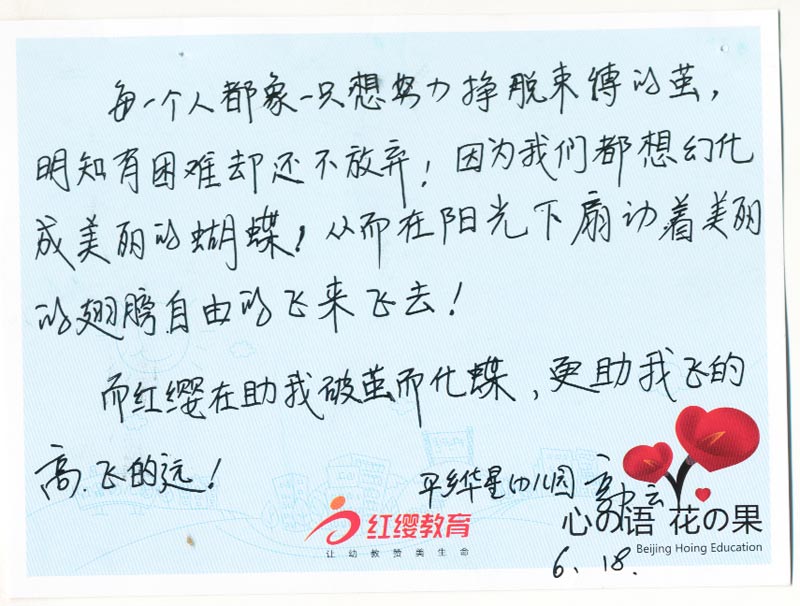 每一个人都象一只想努力挣脱束缚的茧，
明知有困难却还不放弃！因为我们都想幻化
成美丽的蝴蝶！从而在阳光下扇动着美丽
的翅膀自由的飞来飞去！
而红缨在助我破茧而化蝶，更助我飞的
高飞的远！
平乡华星幼儿园
红缨教育
让幼教赞美生命
心の语 花の果
Beijing Hoing Education
6、18.